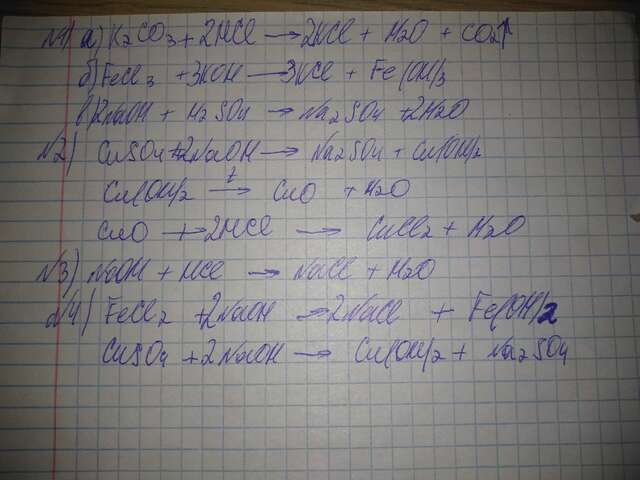 №1 а) K2CO3 + 2HCl → 2KCl + H2O + CO2↑
б) FeCl3 + 3KOH → 3KCl + Fe(OH)3
в) 2NaOH + H2SO4 → Na2SO4 + 2H2O
№2) CuSO4 + 2NaOH → Na2SO4 + Cu(OH)2
Cu(OH)2 t→ CuO + H2O
CuO + 2HCl → CuCl2 + H2O
№3) NaOH + HCl → NaCl + H2O
№4) FeCl2 + 2NaOH → 2NaCl + Fe(OH)2
CuSO4 + 2NaOH → Cu(OH)2 + Na2SO4